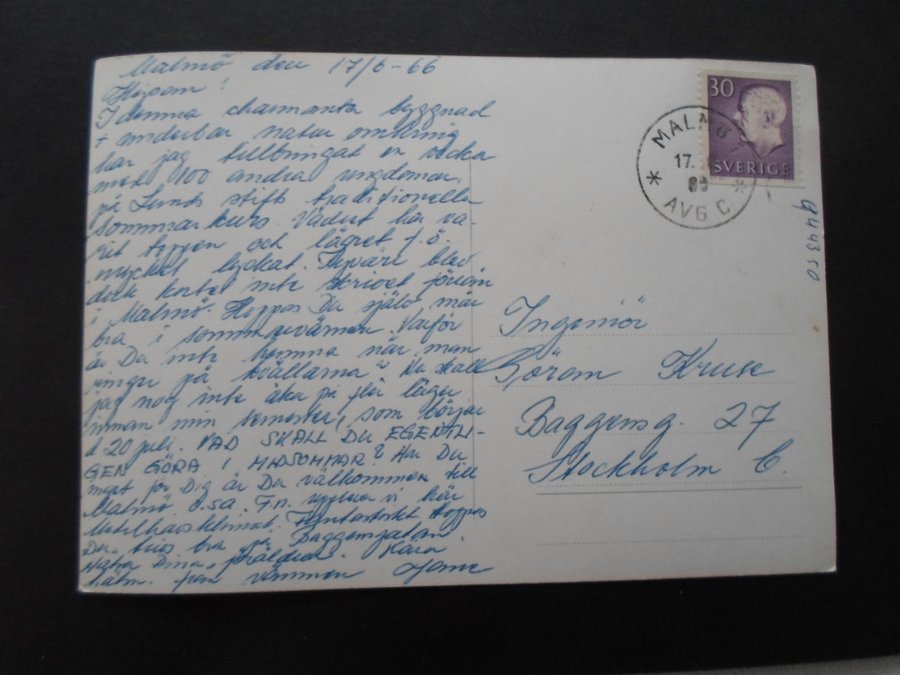 Malmö den 17/6-66
Hejsan!
I denna charmanta byggnad
+ underbar natur omkring
har jag tillbringat en vecka
med 100 andra ungdomar
på Lunds stifts traditionella
sommarkurs. Vädret har va-
rit toppen och lägret f.ö.
mycket lyckat. Tyvärr blev
dock kortet inte skrivet förrän
i Malmö. Hoppas Du själv mår
bra i sommarvärmen. Varför
är Du inte hemma när man
ringer på kvällarna? Nu skall
jag nog inte åka på fler läger
innan min termostat, som börjar
d 20 juli. VAD SKALL DU EGENTLI-
GEN GÖRA I MIDSOMMAR? Har Du
inget för Dig är Du välkommen till
Malmö. O.S.A. F.n. upplever vi här
Medelhavsklimat. Fantastiskt. Hoppas
Du trivs bra på Baggensgatan.
Hälsa Dina föräldrar. Kära
hälsn. från vännen
30
SVERIGE
MALMÖ
17.
66
AVG C
944350
Ingeniör
Göran Kruse
Baggensg. 27
Stockholm C.